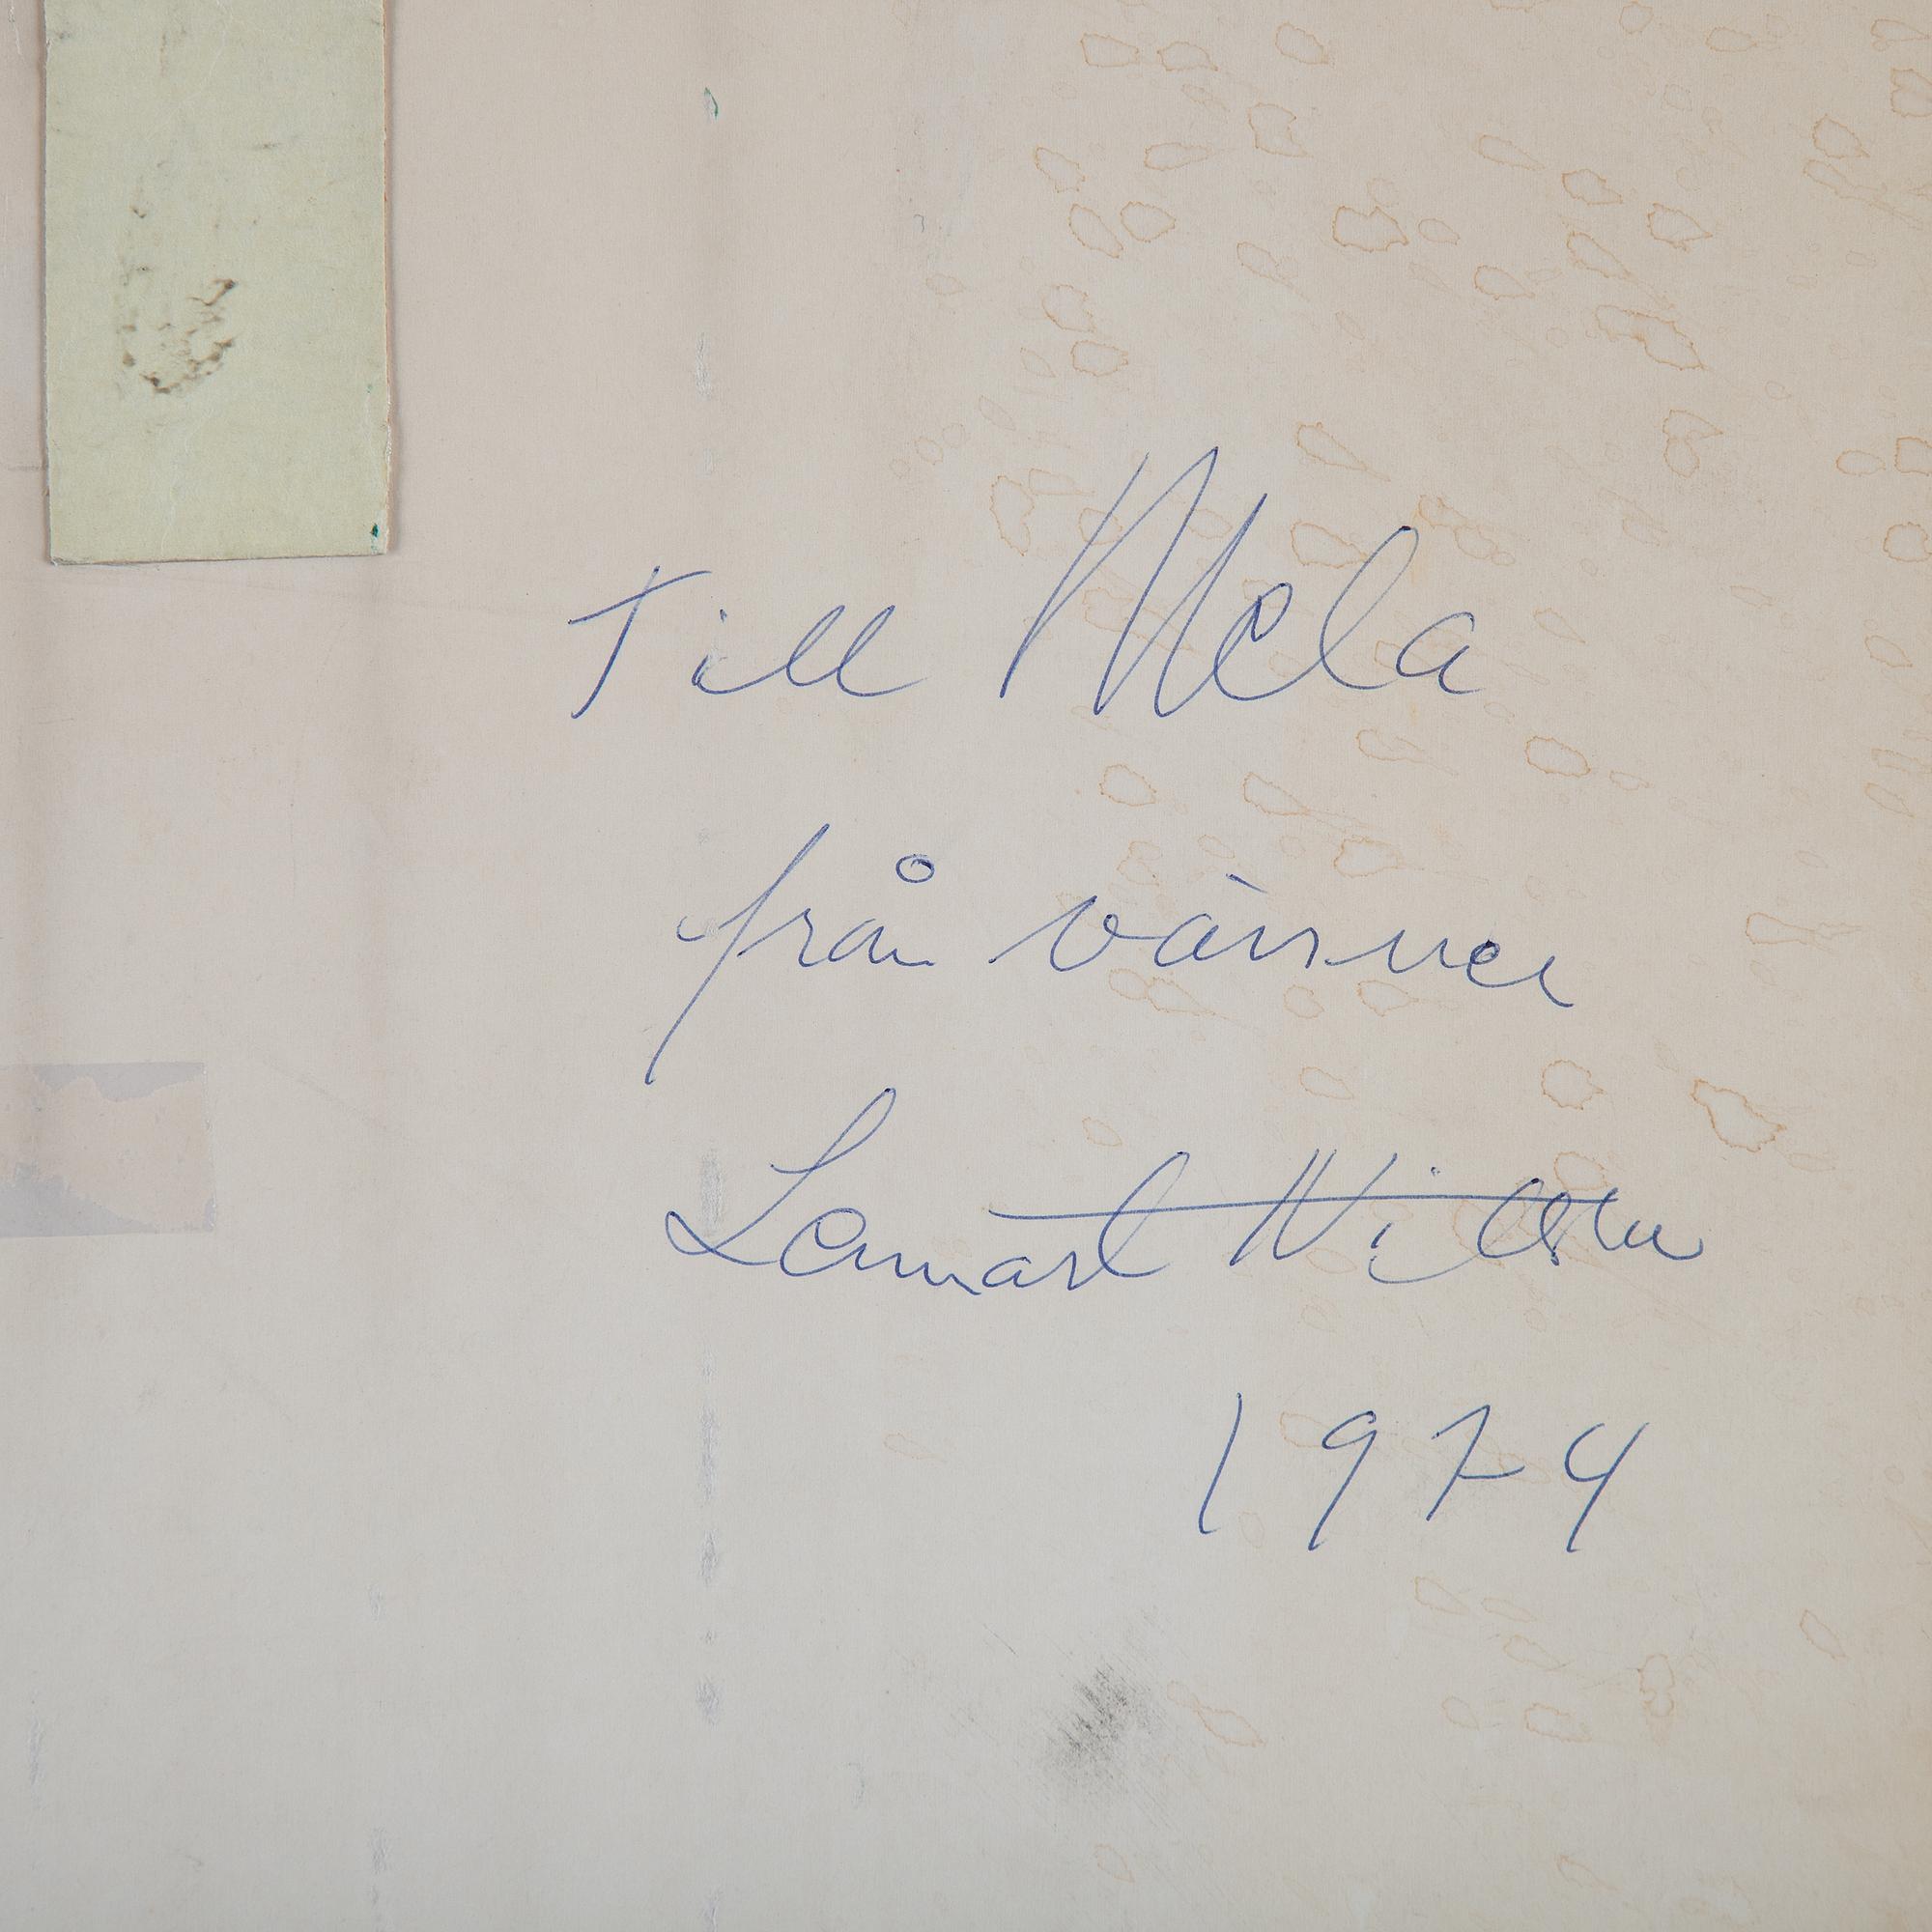 Till Mela
från vännen
Lennart Nilsson
1974